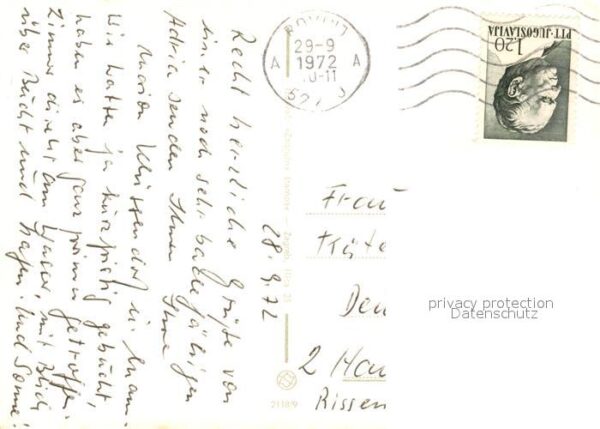 28.9.72
Recht herzliche Grüße von
einer noch sehr badefähigen
Adria senden Ihnen Ihre
Marion
Wir hatten ja kurzfristig gebucht,
haben es aber ganz prima getroffen.
Zimmer direkt am Wasser, mit Blick
über Bucht und Hafen. Und Sonne!
29-9
1972
10-11
A A
57
PTT-JUGOSLAVIJA
1,20
Frau
Käte
2 Ha
Rissen
2118/9
privacy protection
Datenschutz